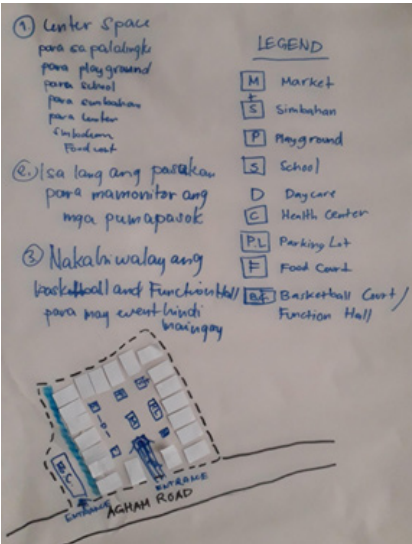 ① Center Space
para sa palalingke
para playground
para school
para simbahan
para center
Food court
② Isa lang ang pasukan
para mamonitor ang
mga pumapasok
③ Nakahiwalay ang
basketball and Function Hall
para may event hindi
maingay
LEGEND
M Market
S Simbahan
P Playground
S School
D Daycare
C Health Center
P.L Parking Lot
F Food Court
B.C Basketball Court/
Function Hall
B.C.
ENTRANCE
ENTRANCE
AGHAM ROAD